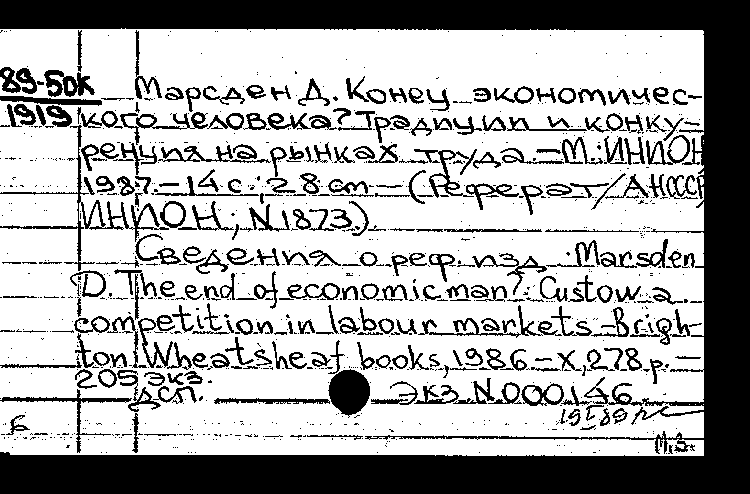 89-5DK
1919
Марсден Д. Конец экономичес-
кого человека? Традиции и конку-
ренция на рынках труда.—М.: ИНИОН
1987.—14 с.; 28 cm — (Реферат/АНСССР
ИНИОН; N 1873).
Сведения о реф. изд. Marsden
D. The end of economic man? Custow a
competition in labour markets—Brigh-
ton: Wheatsheaf books, 1986.—X, 278 p.—
205 экз.
ДСП. Экз. N 000146
М.З.